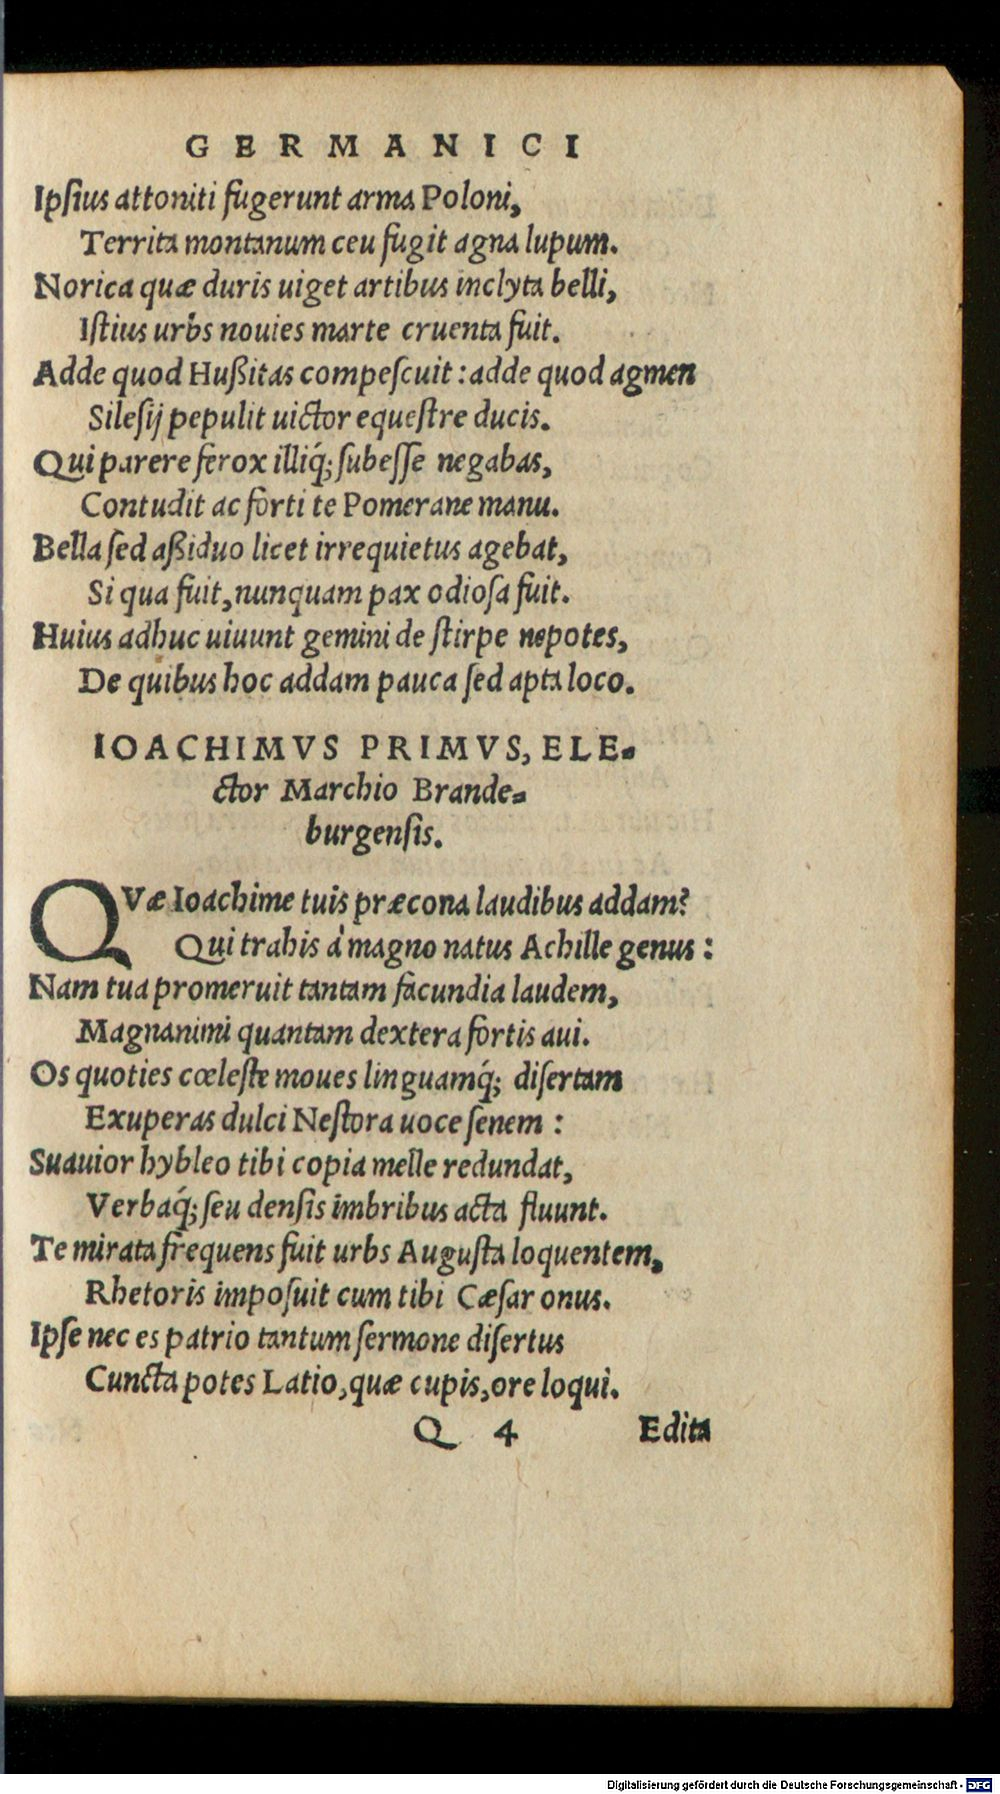 GERMANICI
Ipſius attoniti fugerunt arma Poloni,
Territa montanum ceu fugit agna lupum.
Norica quæ duris uiget artibus inclyta belli,
Iſtius urbs nouies marte cruenta fuit.
Adde quod Hußitas compeſcuit : adde quod agmen
Sileſij pepulit uictor equeſtre ducis.
Qui parere ferox illiq́; ſubeſſe negabas,
Contudit ac forti te Pomerane manu.
Bella ſed aßiduo licet irrequietus agebat,
Si qua fuit, nunquam pax odioſa fuit.
Huius adhuc uiuunt gemini de ſtirpe nepotes,
De quibus hoc addam pauca ſed apta loco.
IOACHIMVS PRIMVS, ELE-
ctor Marchio Brande-
burgenſis.
QVæ Ioachime tuis præcona laudibus addam?
Qui trahis à magno natus Achille genus :
Nam tua promeruit tantam facundia laudem,
Magnanimi quantam dextera fortis aui.
Os quoties cœleſte moues linguamq́; diſertam
Exuperas dulci Neſtora uoce ſenem :
Suauior hybleo tibi copia melle redundat,
Verbaq́; ſeu denſis imbribus acta fluunt.
Te mirata frequens fuit urbs Auguſta loquentem,
Rhetoris impoſuit cum tibi Cæſar onus.
Ipſe nec es patrio tantum ſermone diſertus
Cuncta potes Latio, quæ cupis, ore loqui.
Q 4 Edita
Digitalisierung gefördert durch die Deutsche Forschungsgemeinschaft - DFG